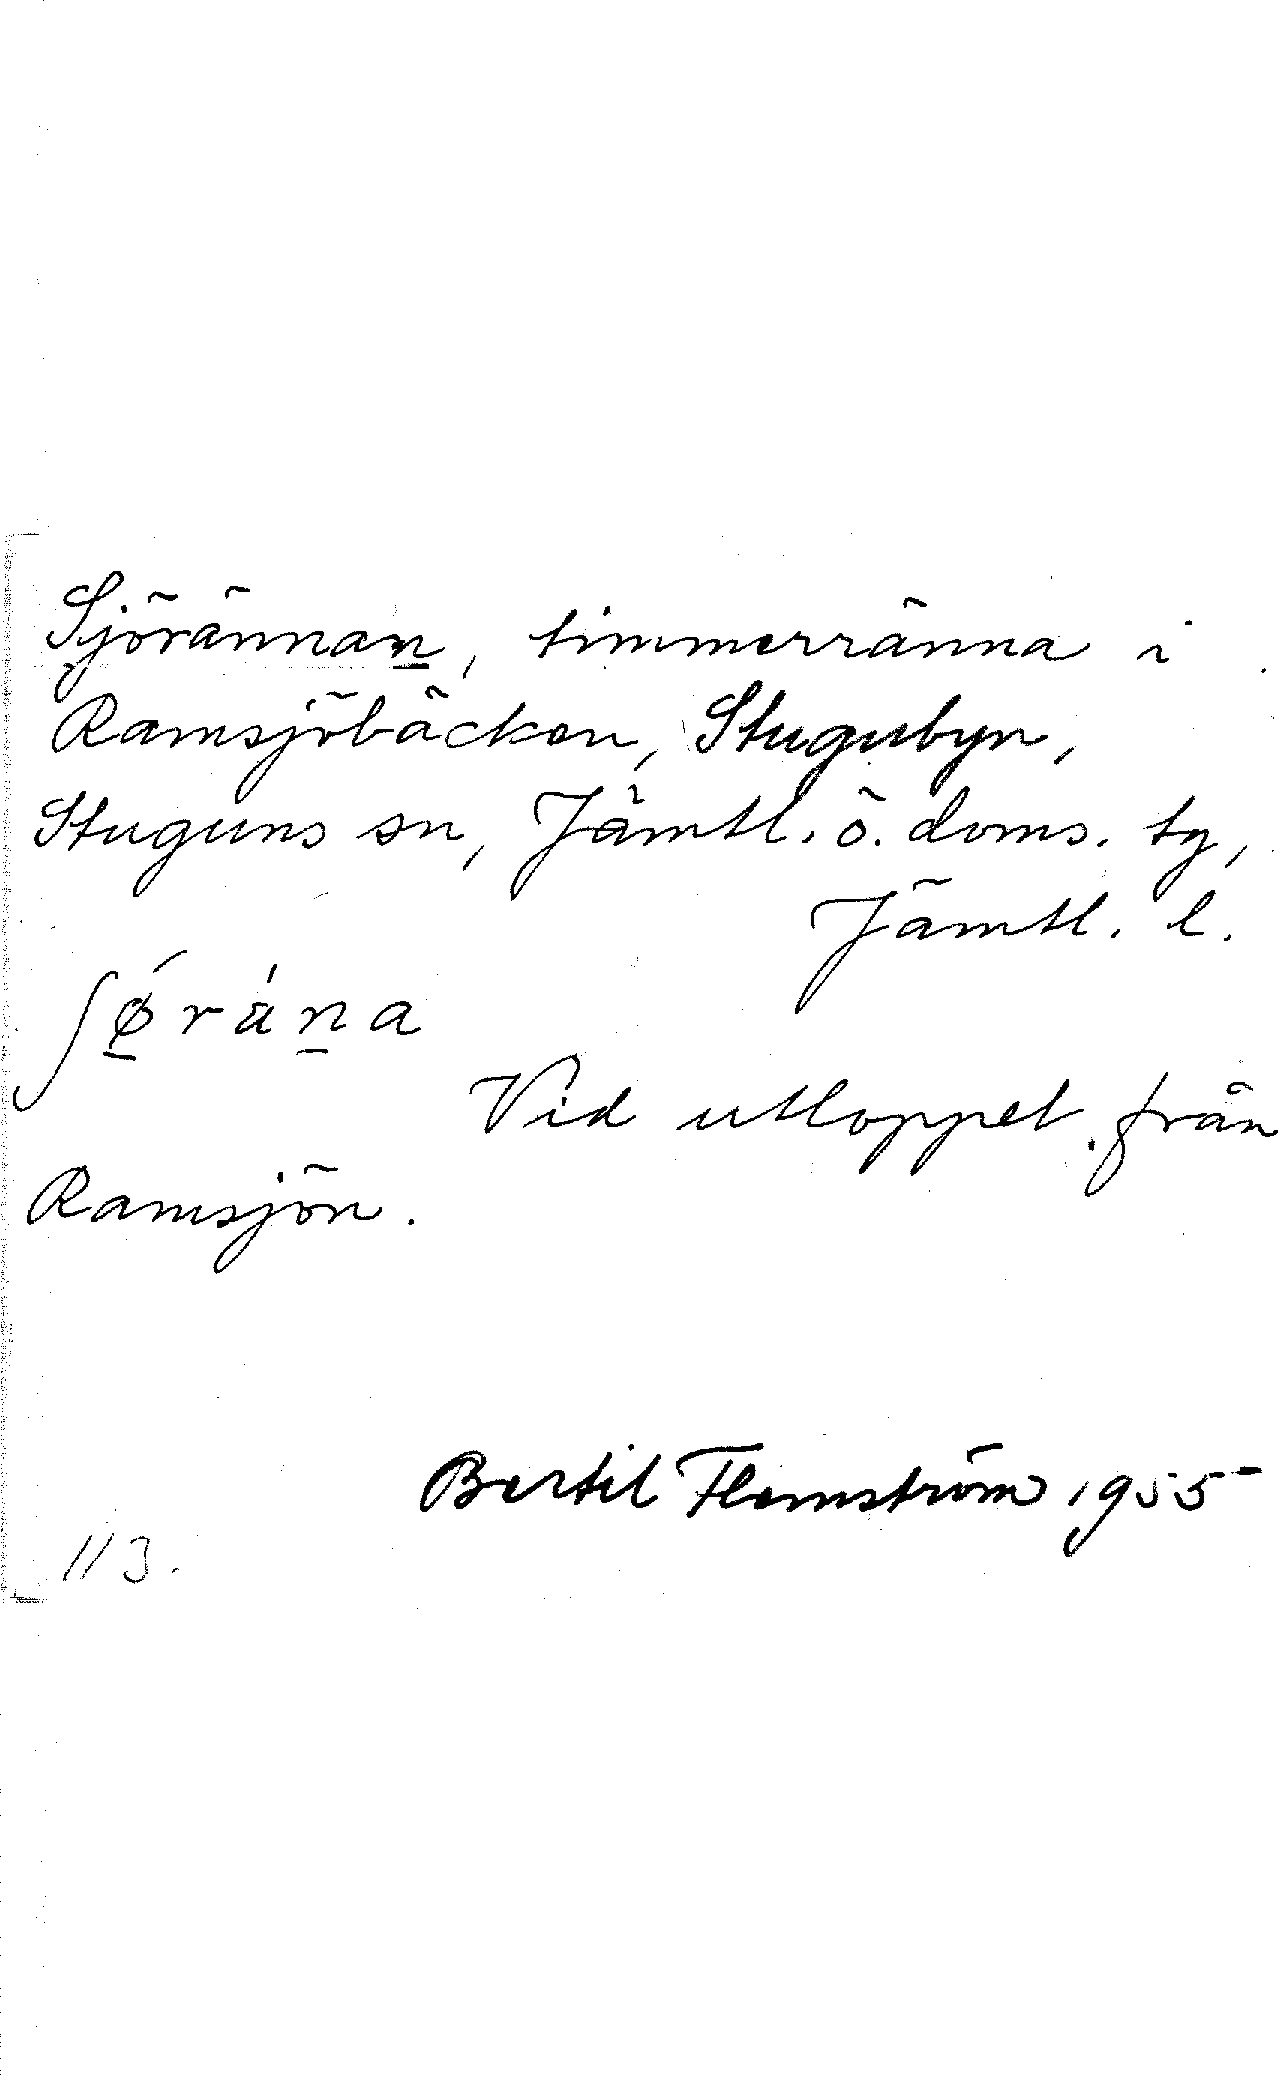 Sjörännan, timmerränna i
Ramsjöbäcken, Stugubyn,
Stuguns sn, Jämtl. ö. doms. tg,
Jämtl. l.
ʃǿ̱rä́ṉa
Vid utloppet från
Ramsjön.
Bertil Flemström 1955
113.